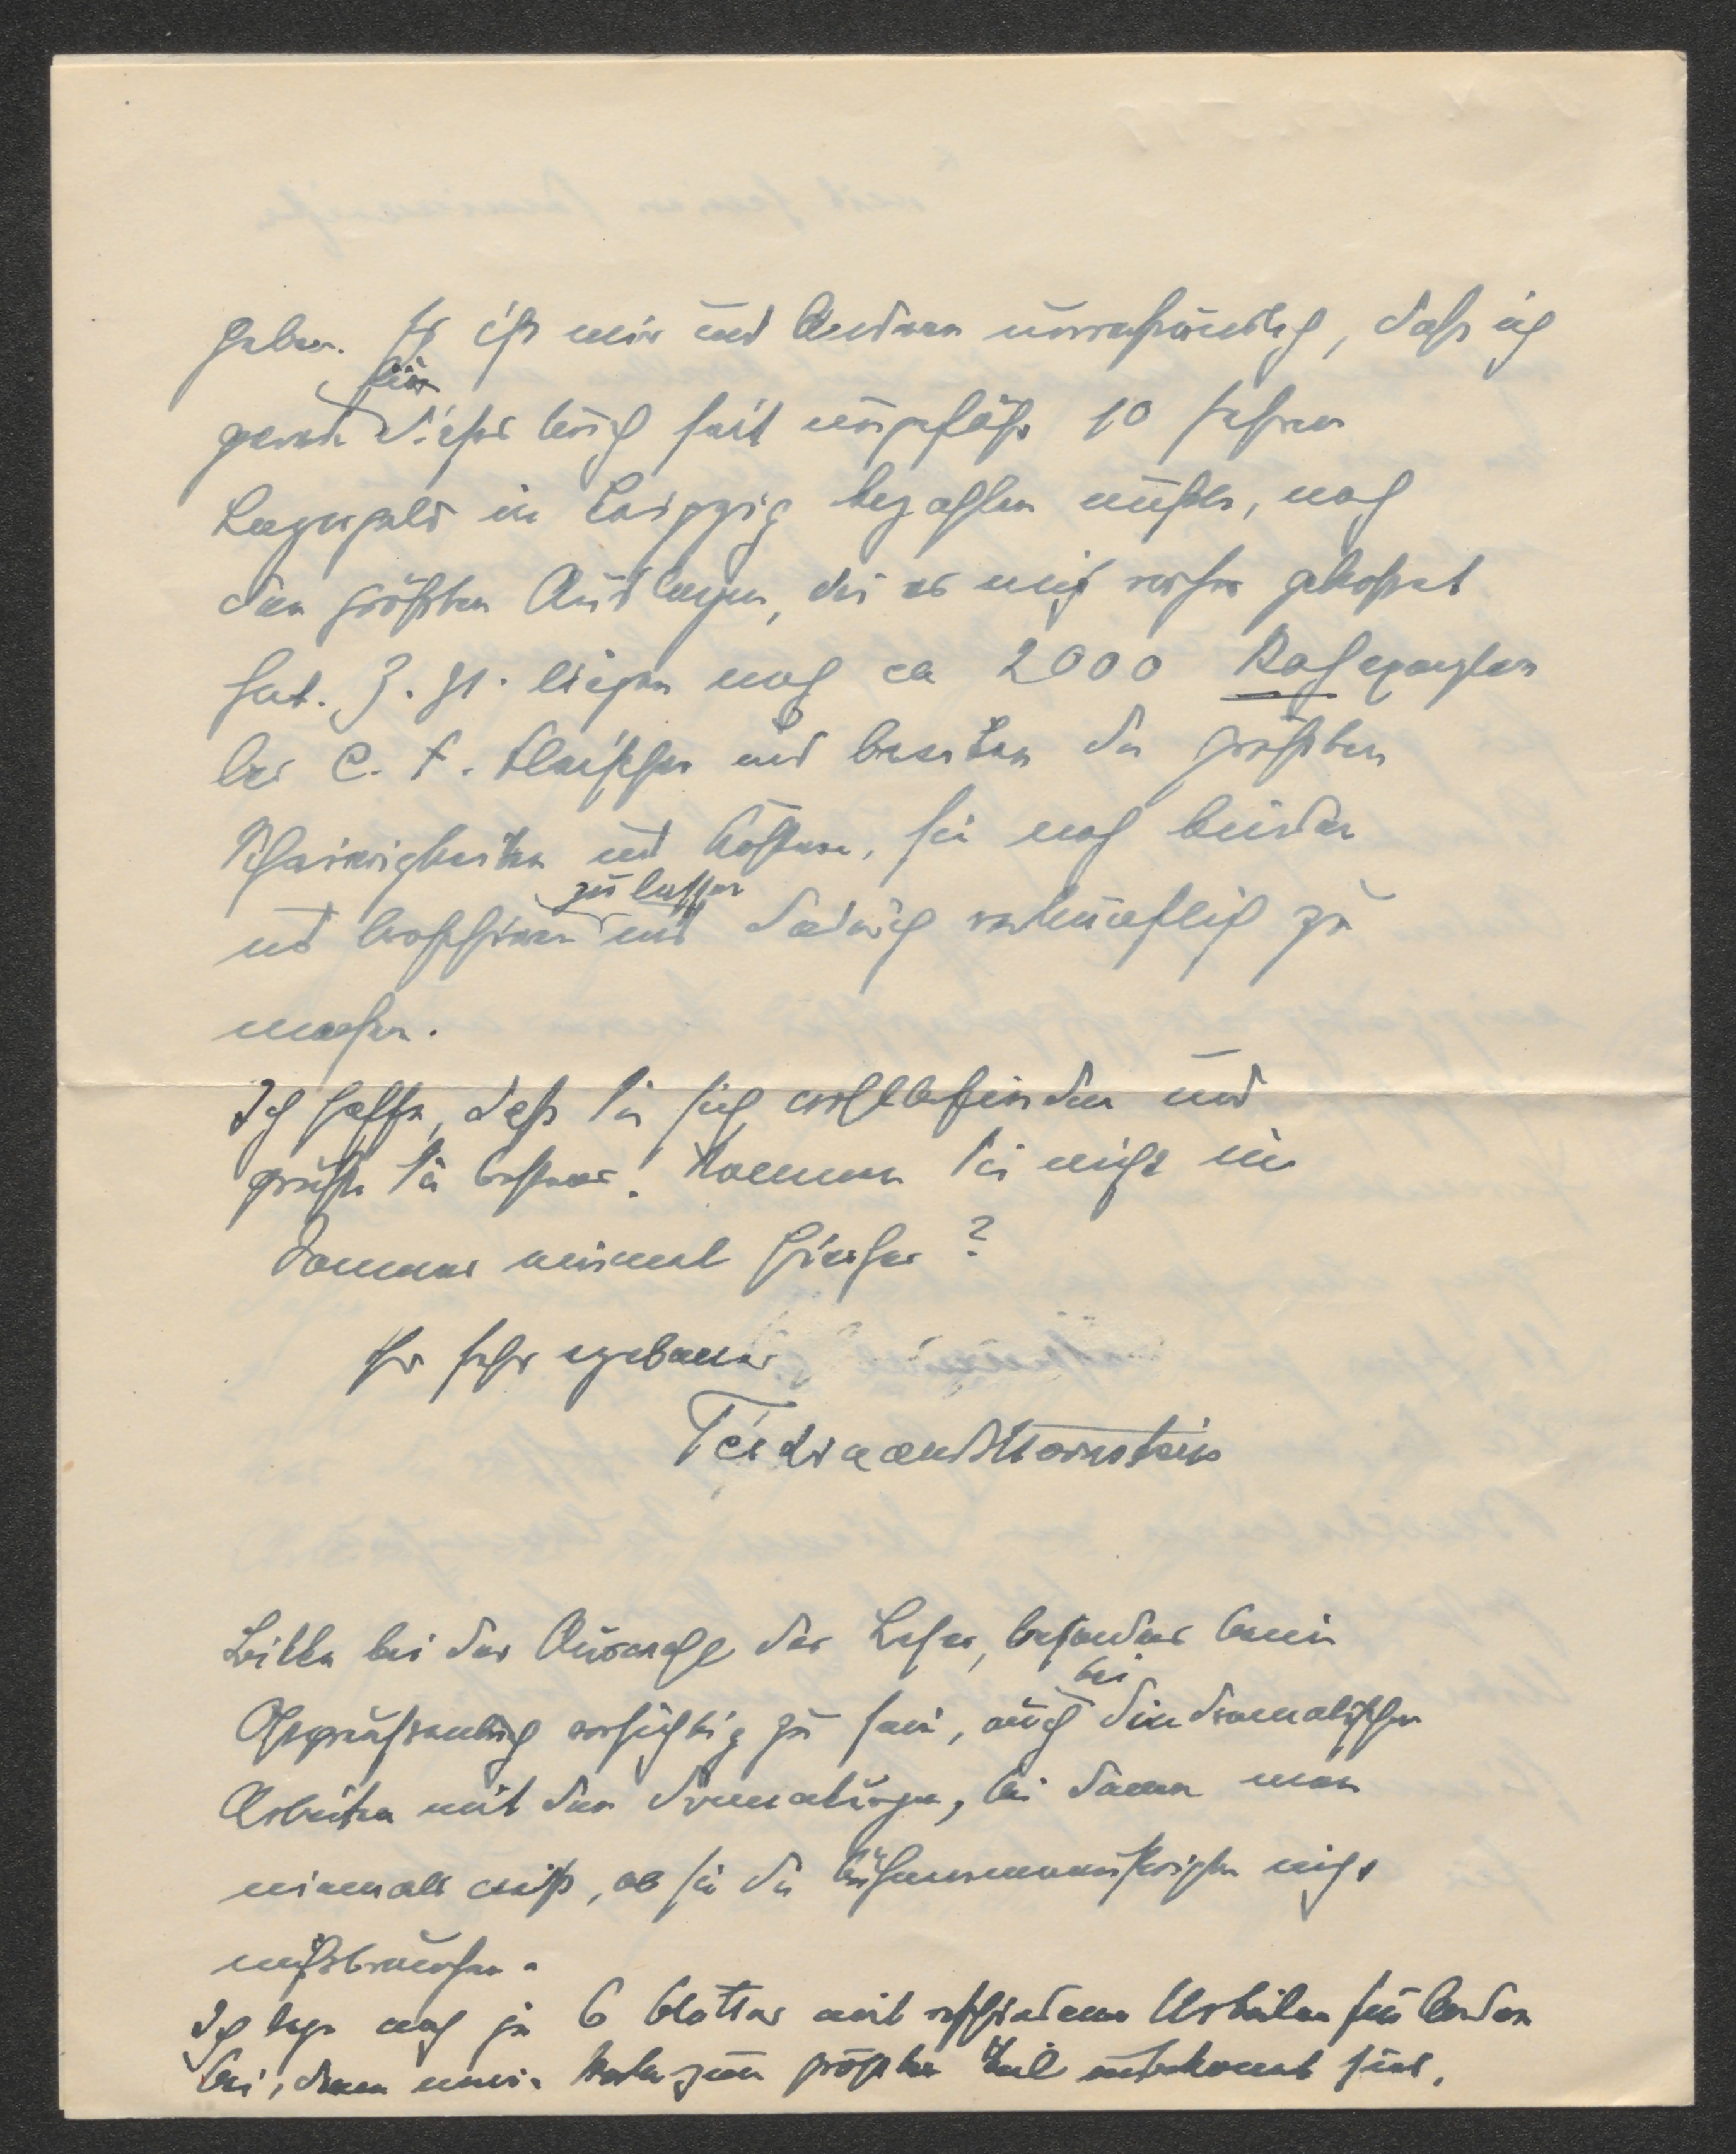 haben. Es ist mir und Anderen unverständlich, dass ich
gerade für dieses Buch seit ungefähr 10 Jahren
Lagergeld in Leipzig bezahlen musste, nach
den grössten Auslagen, die es mich vorher gekostet
hat. Z. Zt. liegen noch ca 2000 Rohexemplare
bei C. F. Fleischer und bereiten die grössten
Schwierigkeiten und Kosten, sie noch binden
und broschieren zu lassen und dadurch verkäuflich zu
machen.
Ich hoffe, dass Sie sich wohlbefinden und
grüsse Sie bestens. Kommen Sie nicht im
Sommer einmal hierher?
Ihr sehr ergebener
Ferdinand v Hornstein
Bitte bei der Auswahl der Leser, besonders beim
vorsichtig zu sein, auch bei den dramatischen
Arbeiten mit den Dramaturgen, bei denen man
niemals weiss, ob sie die Bühnenmanuskripte nicht
missbrauchen.
Ich lege noch je 6 Blätter mit verschiedenen Urteilen für
bei, denen meine Werke zum grössten Teil unbekannt sind.